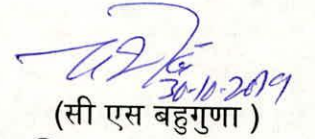 30-10-2019
(सी एस बहुगुणा )